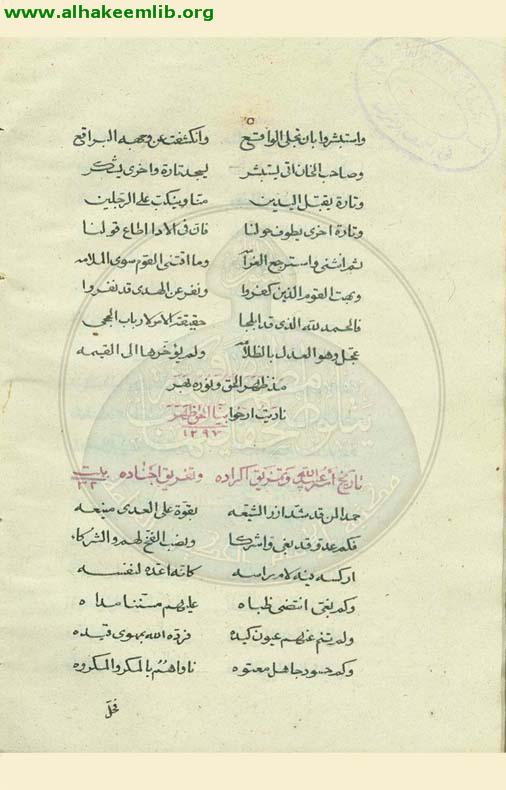 www.alhakeemlib.org
٥
واستبشروا بان تجلى الواقع وانكشفت عن وجهه البراقع
وصاحب الخان اتى يستبشر يسجد تارة واخرى يشكر
وتارة يقبل اليدين منا وينكب على الرجلين
وتارة اخرى يطوف حولنا فان في الاداء اطاع قولنا
ثم انثنى واسترجع الغرامه وما اقتنى القوم سوى الملامه
وبهت القوم الذين كفروا ونفر عن الهدى قد نفروا
فالحمد لله الذي قد حقيقة الامر لارباب الحجى
عجل وهو العدل بالظلامه ولم يؤخرها الى القيمه
مذ ظهر الحق ونوره بهر
ناديت ارخوا بنا الحق ظهر
١٢٩٧
تاريخ أسر عبد الله وتفريق اكراده وتفريق اجناده بيت
حمدا لمن قد شد ازر الشيعه بقوة على العدى منيعه
فكم عدو قد بغى واشركا ونصب الفخ لهم والشركا
اركسه فيه لام راسه كانه اعده لنفسه
وكم بغى انتضى ظباه عليهم مستنا مداه
ولم تنم عنهم عيون كيده فرده الله يهوى قيده
وكم حسود جاهل معتوه ناواهم بالمكر والمكروه
فحل